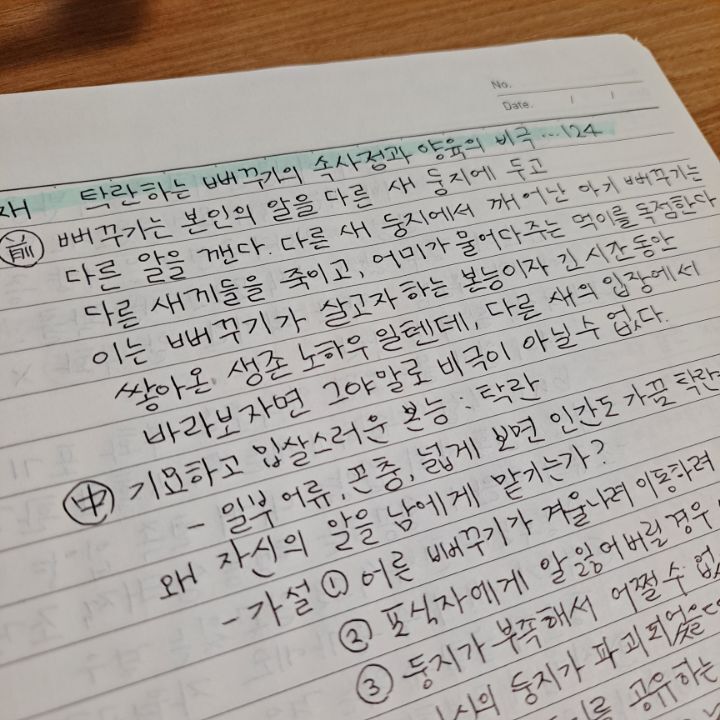 No.
Date. / /
탁란하는 뻐꾸기의 속사정과 양육의 비극 ... 124
前 뻐꾸기는 본인의 알을 다른 새 둥지에 두고
다른 알을 깬다. 다른 새 둥지에서 깨어난 아기 뻐꾸기는
다른 새끼들을 죽이고, 어미가 물어다주는 먹이를 독점한다
이는 뻐꾸기가 살고자 하는 본능이자 긴 시간동안
쌓아온 생존 노하우일텐데, 다른 새의 입장에서
바라보자면 그야말로 비극이 아닐 수 없다.
中 기묘하고 밉살스러운 본능 : 탁란
- 일부 어류, 곤충, 넓게 보면 인간도 가끔 탁란
왜 자신의 알을 남에게 맡기는가?
- 가설 ① 어른 뻐꾸기가 겨울나러 이동하려
② 포식자에게 알 잃어버릴 경우
③ 둥지가 부족해서 어쩔 수 없
둥지가 파괴되었을
공유하는